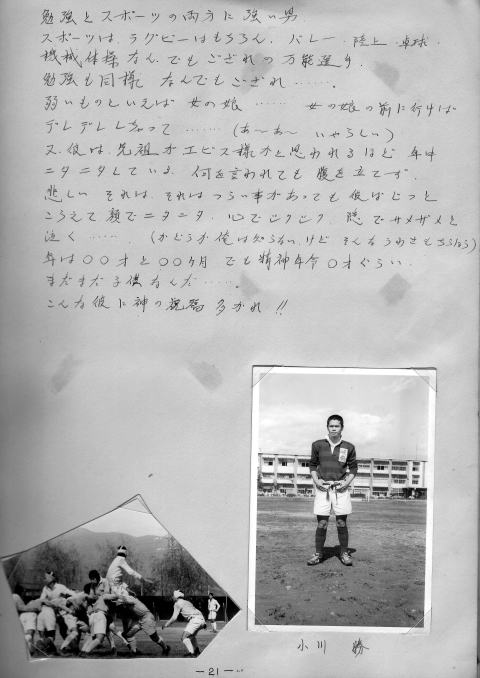 勉強とスポーツの両方に強い男
スポーツは、ラグビーはもちろん、バレー、陸上、卓球、
機械体操なんでもござれの万能選手。
勉強も同様 なんでもござれ………。
弱いものといえば 女の娘…… 女の娘の前に行けば
デレデレしちゃって……… (あ〜あ〜 いやらしい)
又、彼は、先祖がエビス様かと思われるほど 年中
ニタニタしている。何を言われても 腹を立てず、
悲しい それは、それは つらい事があっても 彼はじっと
こらえて 顔でニタニタ、心でシクシク、陰でサメザメと
泣く……。(かどうか俺は知らない、けど そんなうわさもちらほら)
年は〇〇才と〇〇ヶ月 でも精神年令〇才ぐらい、
まだまだ子供なんだ……。
こんな彼に神の祝福多かれ!!
小川 勝
—21—